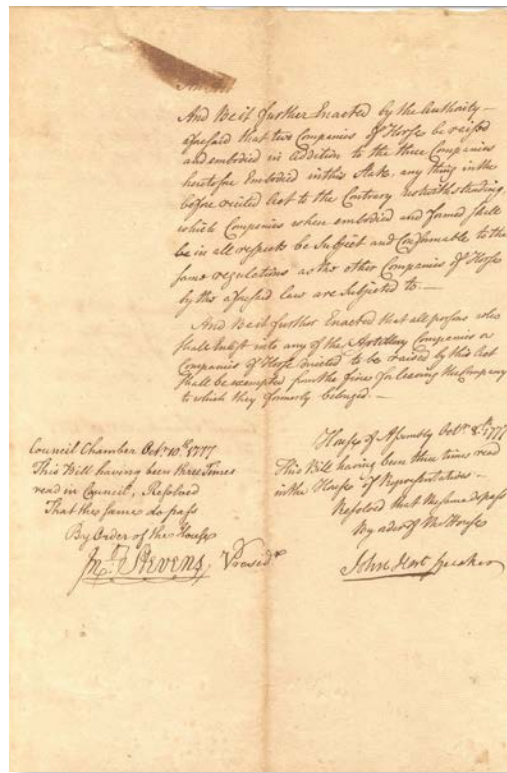 And Be it further Enacted by the Authority —
aforesaid that two Companies of Horse be raised
and embodied in addition to the three Companies
heretofore Embodied in this State, any thing in the
before recited Act to the Contrary notwithstanding,
which Companies when embodied and formed shall
be in all respects be Subject and Conformable to the
same regulations as the other Companies of Horse
by the aforesaid law are Subjected to —
And Be it further Enacted that all persons who
shall Enlist into any of the Artillery Companies or
Companies of Horse directed to be raised by this Act
shall be exempted from the fine for leaving the Company
to which they formerly belonged. —
House of Assembly Octr. 8th. 1777
This Bill having been three times read
in the House of Representatives —
Resolved that the same do pass
By order of the House
John Hart Speaker
Council Chamber Octr. 10th. 1777
This Bill having been three Times
read in Council, Resolved
That the same do pass
By Order of the House
Jno. Stevens, V Presidt.